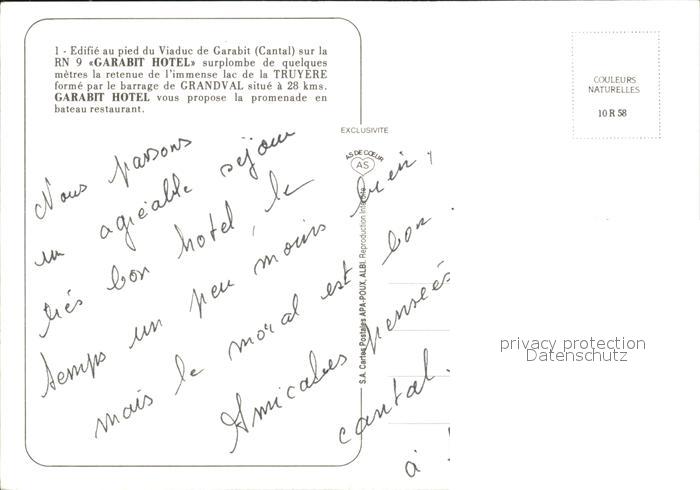 1 - Edifié au pied du Viaduc de Garabit (Cantal) sur la
RN 9 «GARABIT HOTEL» surplombe de quelques
mètres la retenue de l'immense lac de la TRUYERE
formé par le barrage de GRANDVAL situé à 28 kms.
GARABIT HOTEL vous propose la promenade en
bateau restaurant.
COULEURS
NATURELLES
10 R 58
EXCLUSIVITE
AS DE CŒUR
AS
S.A. Cartes Postales APA-POUX, ALBI. Reproduction Interdite
Nous passons
un agréable séjour
très bon hotel, le
temps un peu moins bien,
mais le moral est bon.
Amicales pensées
cantal.
à
privacy protection
Datenschutz